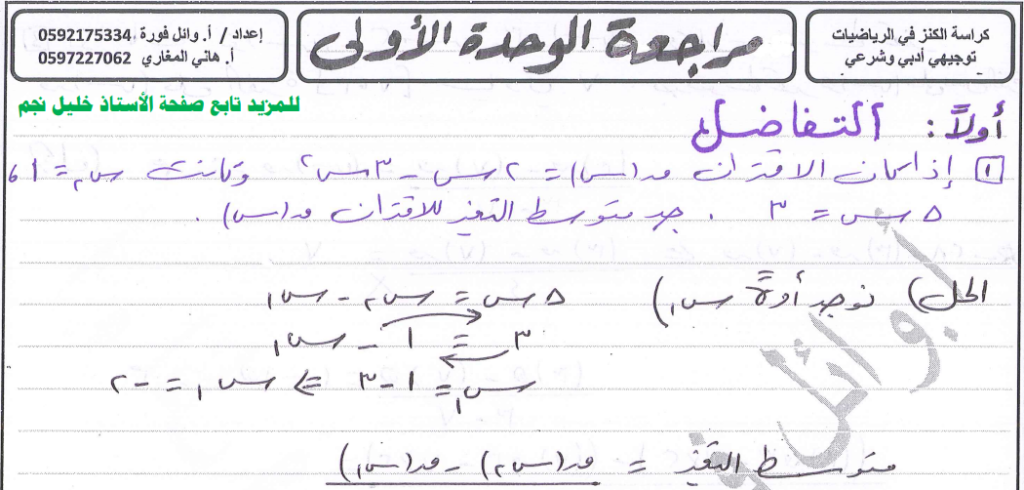 كراسة الكنز في الرياضيات
توجيهي أدبي وشرعي
مراجعة الوحدة الأولى
إعداد / أ. وائل فورة 0592175334
أ. هاني المغاري 0597227062
للمزيد تابع صفحة الأستاذ خليل نجم
أولاً: التفاضل
١ إذا كان الاقتران ق(س) = ٢س - ٣س٢ وكانت س٢ = ١ ،
∆س = ٣ . جد متوسط التغير للاقتران ق(س) .
الحل) نوجد أولاً س١) ∆س = س٢ - س١
٣ = ١ - س١
س١ = ١ - ٣ => س١ = -٢
متوسط التغير = ق(س٢) - ق(س١)
أبو وائل